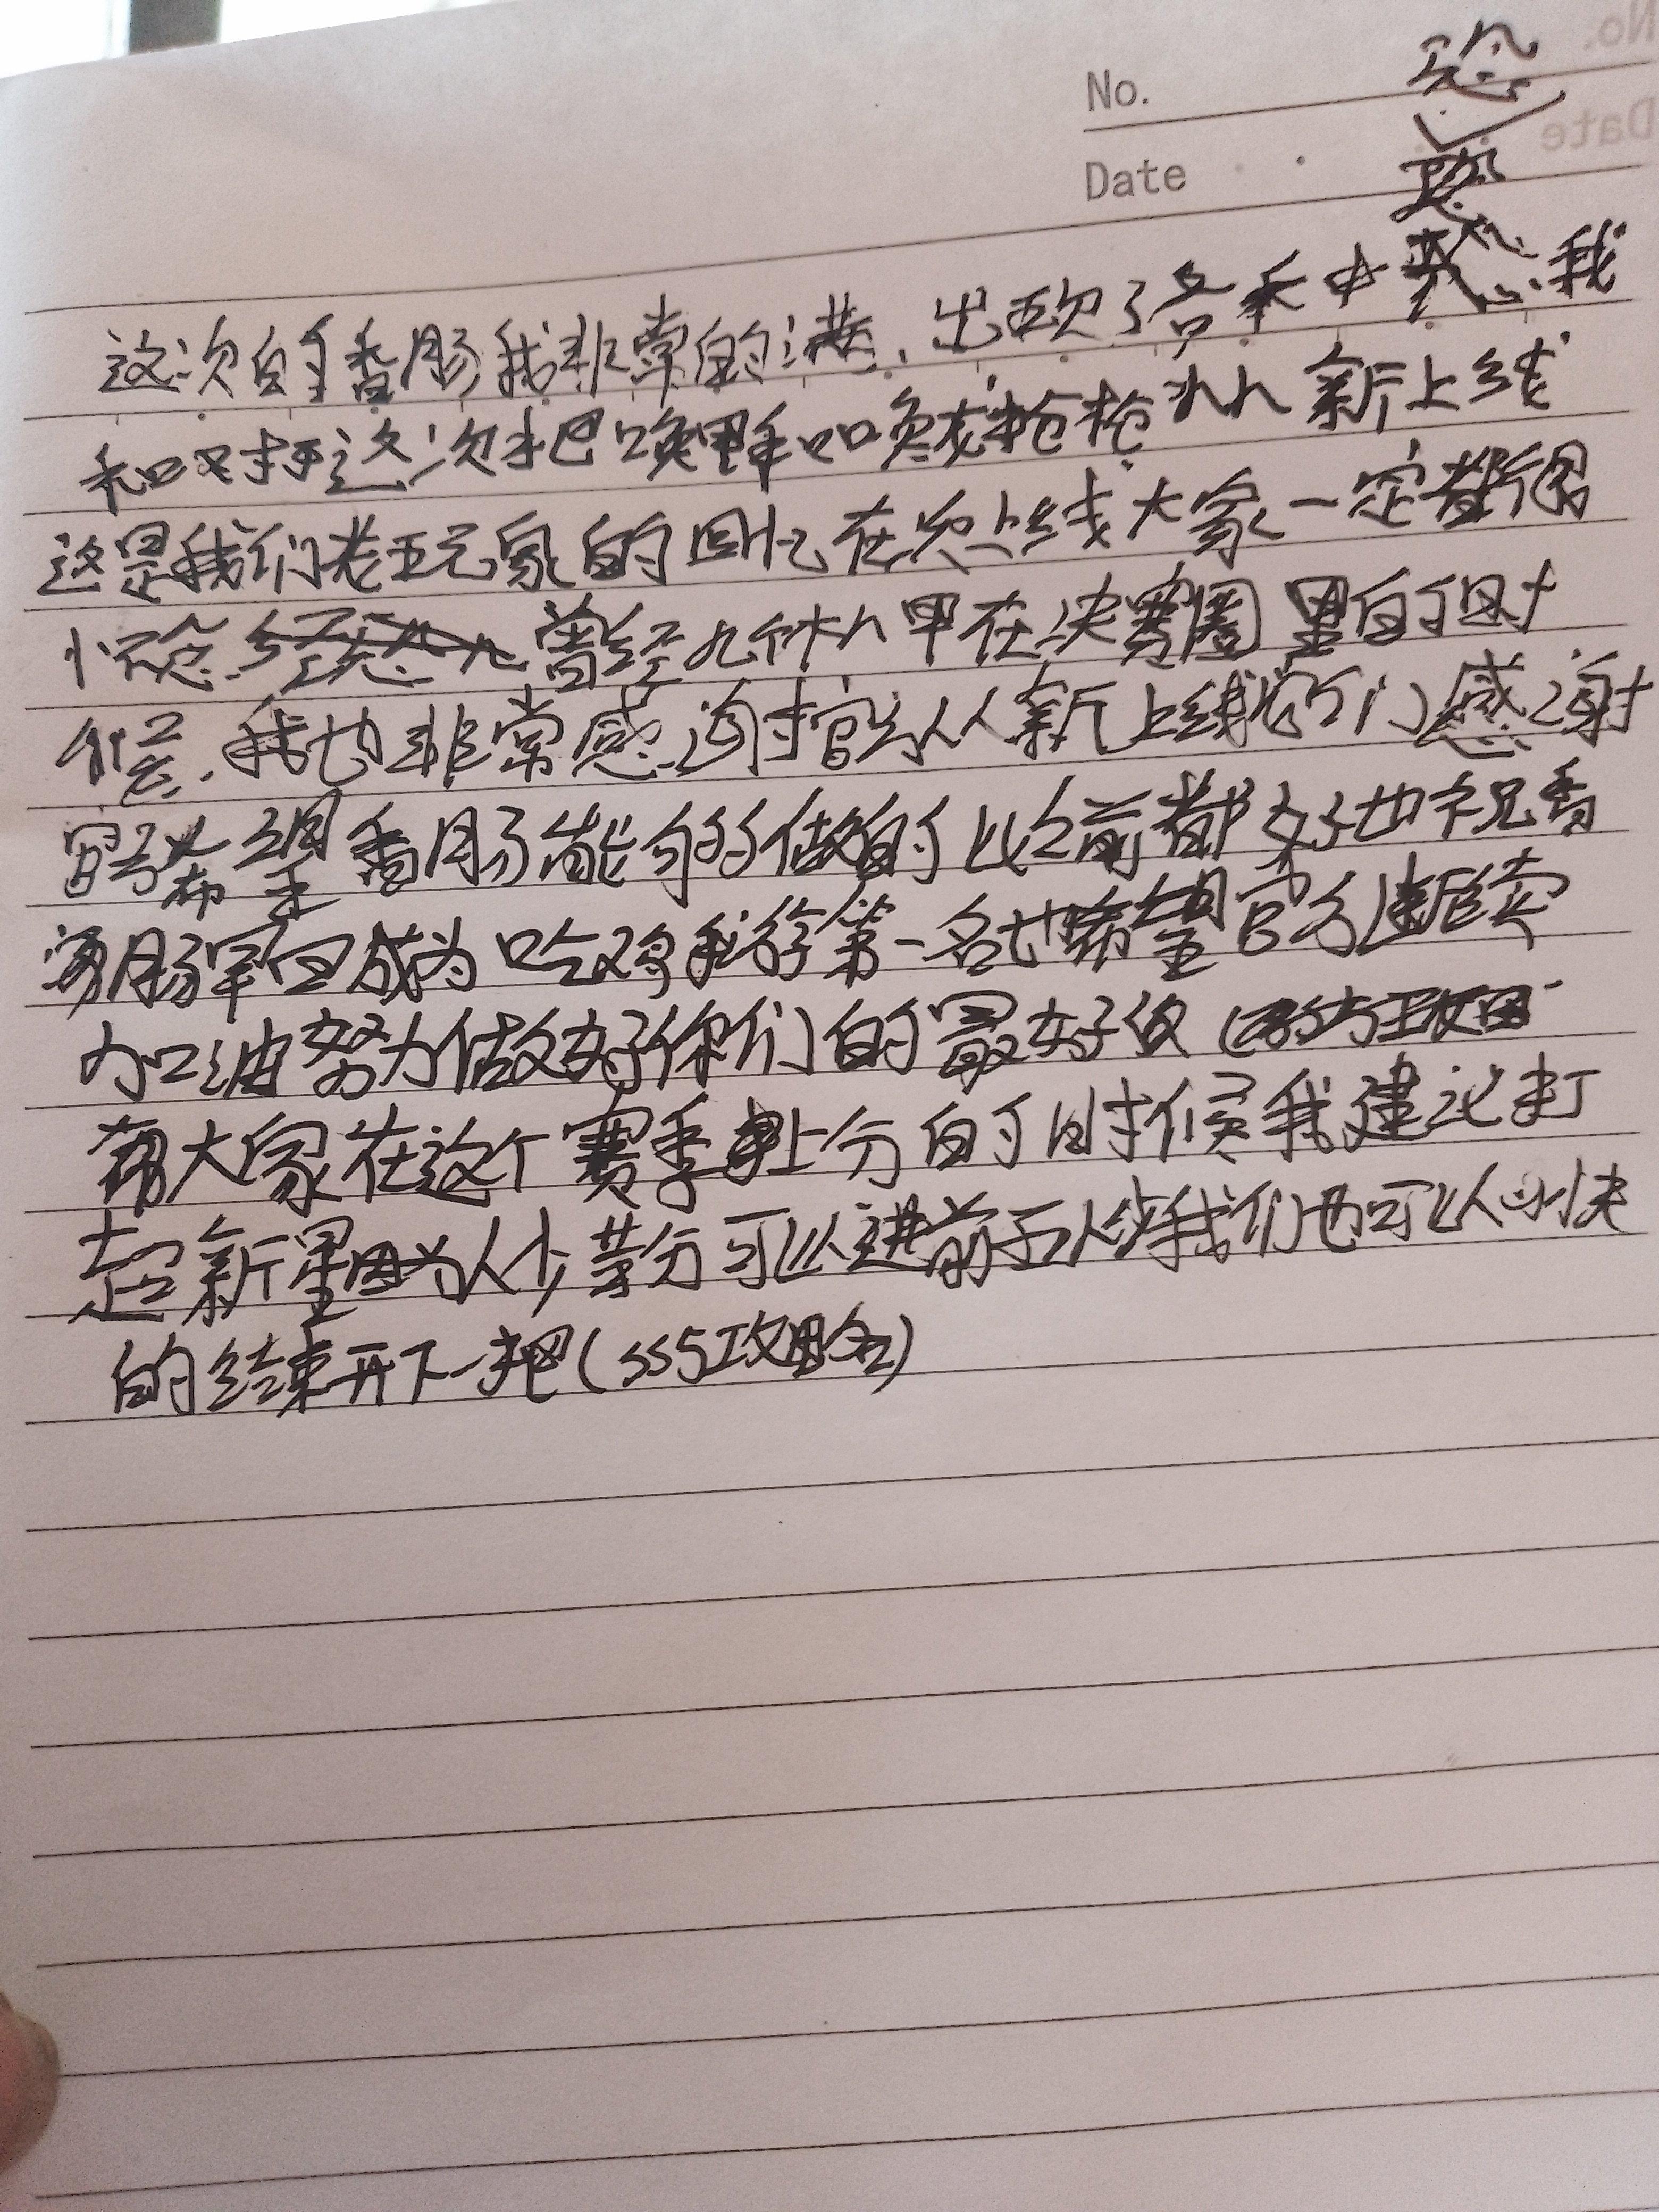 No.
Date
这次的香肠我非常的满,出现了各禾中惑,我
和对打这次把唤野和唤龙枪枪从新上线
这是我们老玩家的回忆在次上线大家一定都很
怀念 曾经九个机甲在决赛圈里的时
候,我也非常感谢官方从新上线我们感谢
官方希望香肠能够做的比之前都好也祝香
肠早日成为吃鸡手游第一名也希望官方继续
加油努力做好你们的最好
帮大家在这个赛季上分的时候我建议打
超新星因为人少苟分可以进前五人我们也可以
的结束开下一把(SS5攻略)